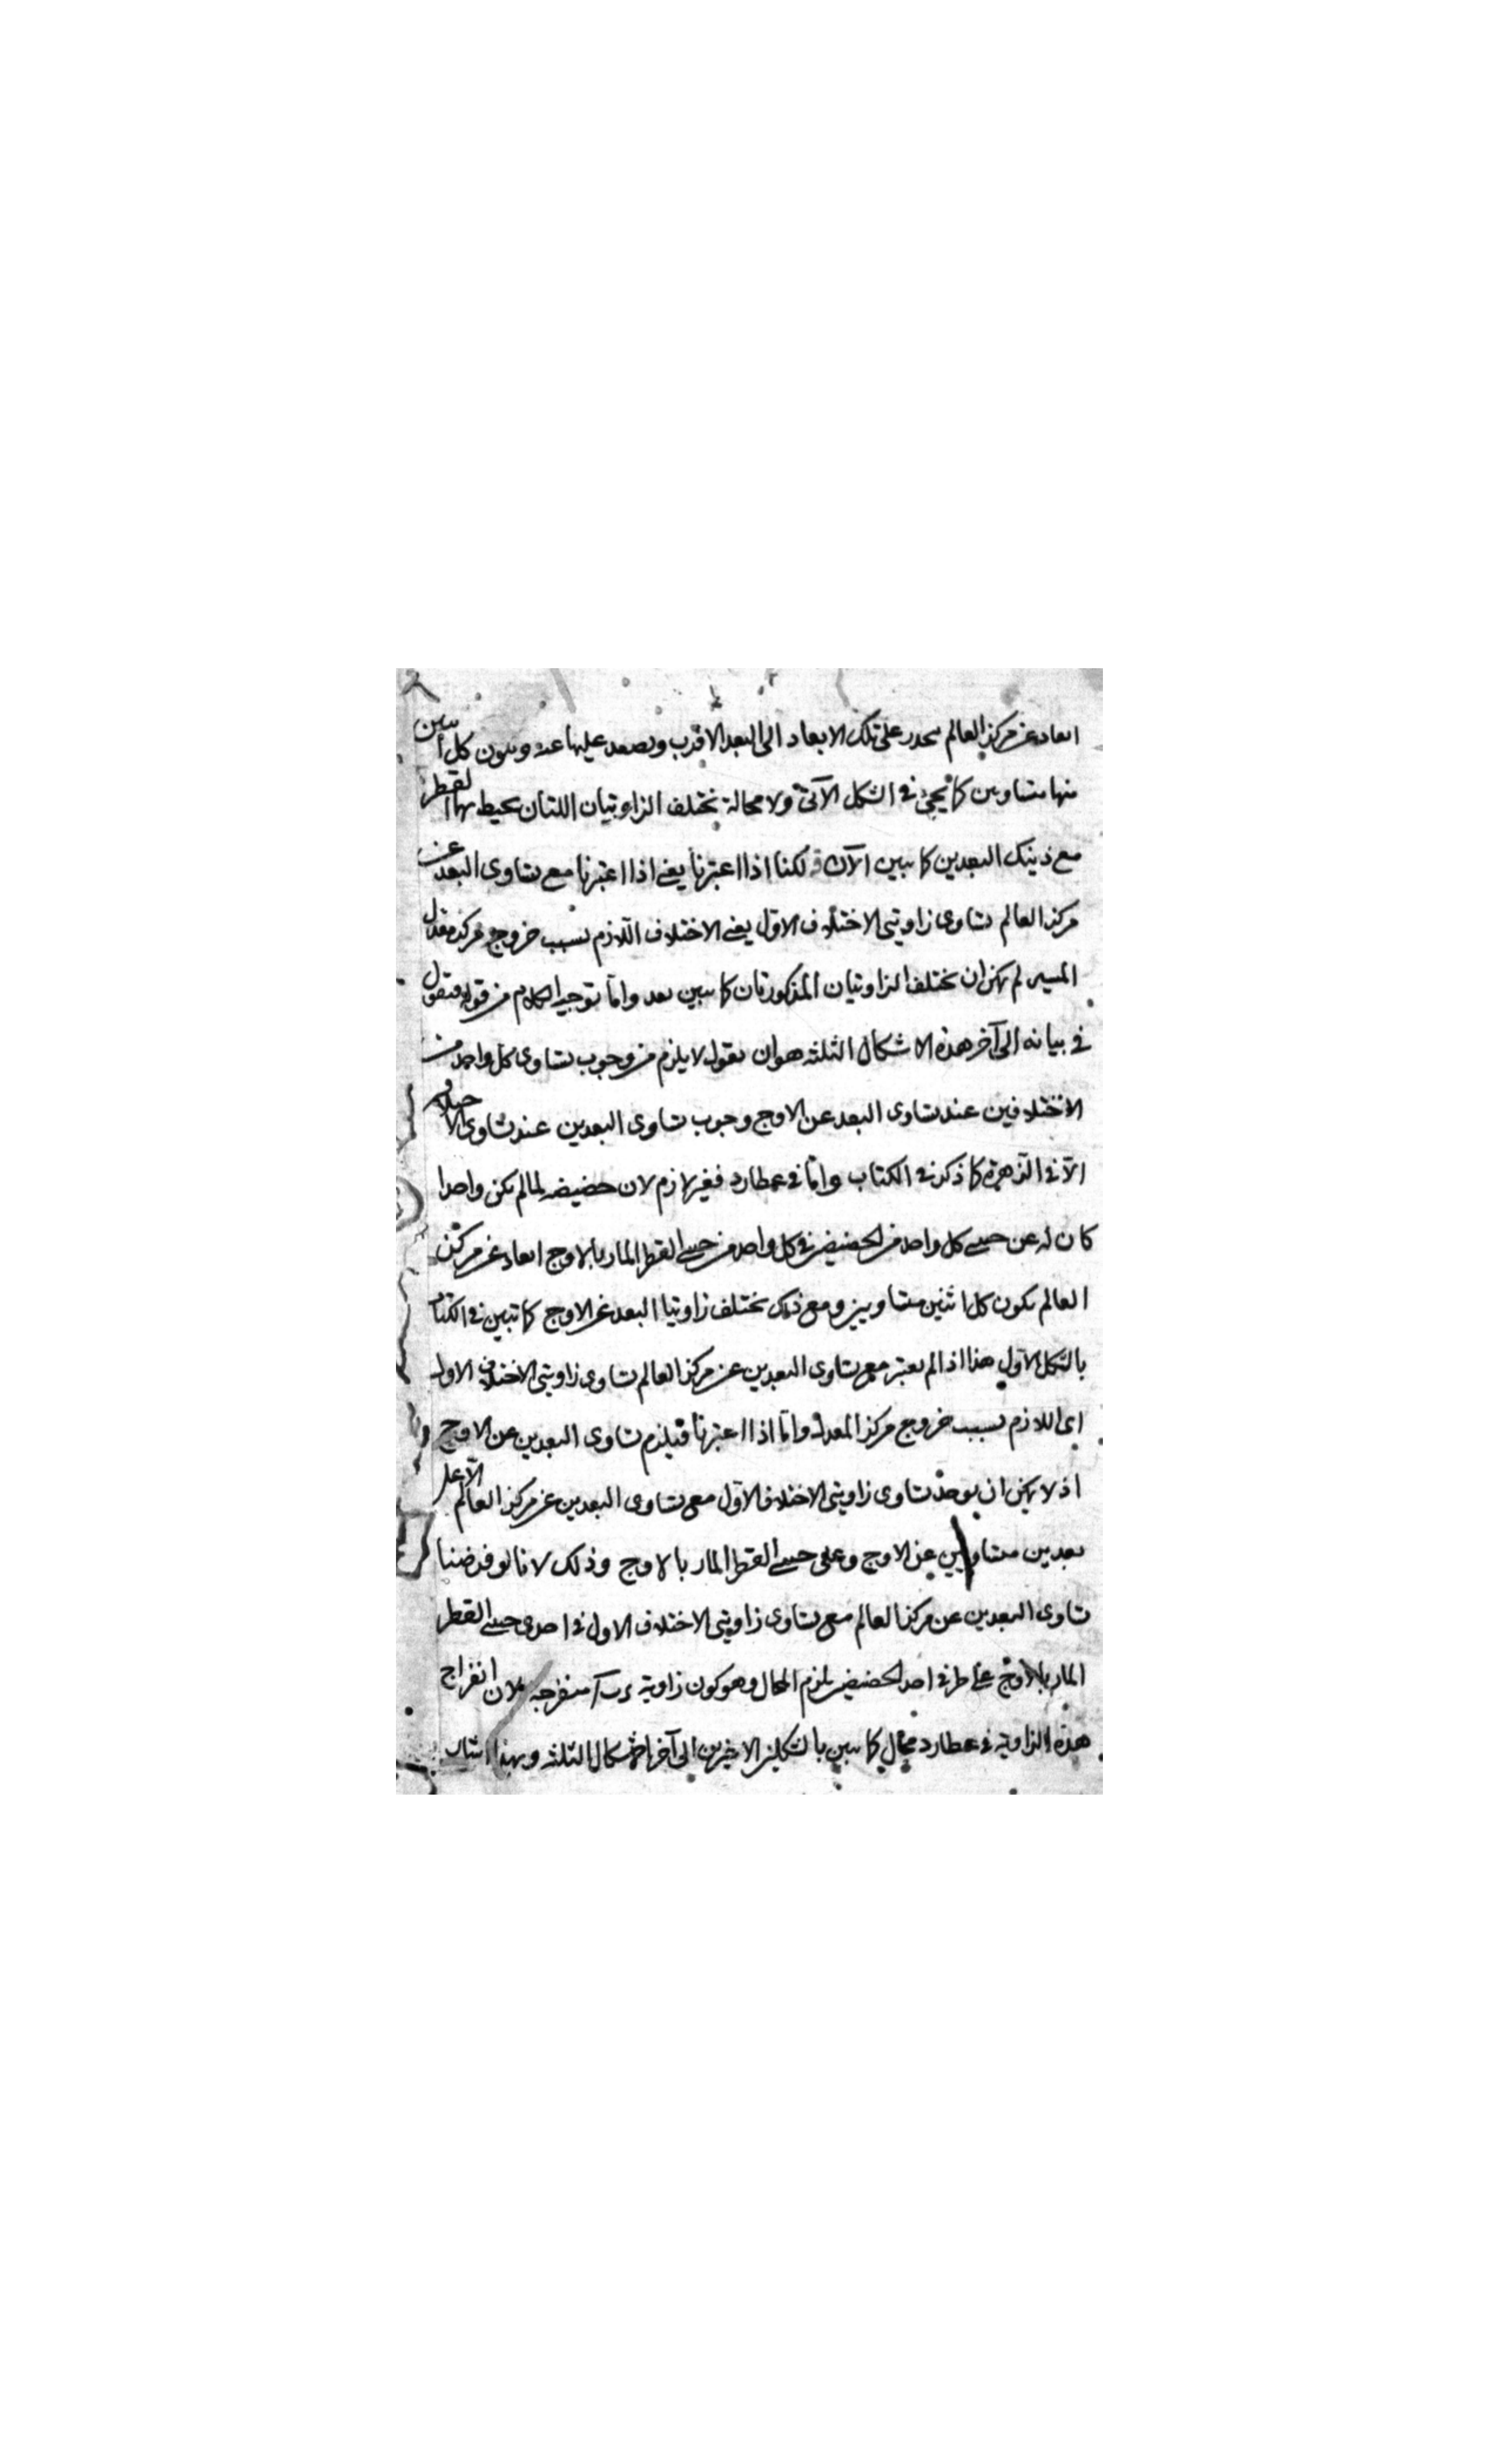 ابعاد عن مركز العالم ينحدر على تلك الابعاد الى البعد الاقرب ويصعد عليها عنه ويكون كل اثنين
منها متساويين كما يجئ في الشكل الآتي ولا محالة تختلف الزاويتان اللتان يحيط بهما القطر
مع ذينك البعدين كما يبين الآن لكنا اذا اعتبرنا يعني اذا اعتبرنا مع تساوى البعد عن
مركز العالم تساوى زاويتي الاختلاف الاول يعني الاختلاف اللازم بسبب خروج مركز معدل
المسير لم يمكن ان تختلف الزاويتان المذكورتان كما يبين بعد واما توجيه الكلام من قوله فنقول
في بيانه الى آخر هذه الاشكال الثلثة هو ان نقول لا يلزم من وجوب تساوى كل واحد من
الاختلافين عند تساوى البعد عن الاوج وجوب تساوى البعدين عند تساوى الاختلاف
الا في الزهرة كما ذكر في الكتاب واما في عطارد فغير لازم لان حضيضه لما لم يكن واحدا
كان له عن جنبي كل واحد من الحضيضين في كل واحد من جنبي القطر المار بالاوج ابعاد عن مركز
العالم يكون كل اثنين متساويين ومع ذلك تختلف زاويتا البعد عن الاوج كما تبين في الكتاب
بالشكل الاول هذا اذا لم يعتبر مع تساوى البعدين عن مركز العالم تساوى زاويتي الاختلاف الاول
اى اللازم بسبب خروج مركز المعدل واما اذا اعتبرنا فيلزم تساوى البعدين عن الاوج
اذ لا يمكن ان يوجد تساوى زاويتي الاختلاف الاول مع تساوى البعدين عن مركز العالم الا على
بعدين متساويين عن الاوج وعلى جنبي القطر المار بالاوج وذلك لانا لو فرضنا
تساوى البعدين عن مركز العالم مع تساوى زاويتي الاختلاف الاول في احدى جنبي القطر
المار بالاوج على طرفي احد الحضيضين يلزم المحال وهو كون زاوية منفرجة لان انفراج
هذه الزاوية في عطارد محال كما يبين بالشكلين الاخيرين الى آخر الاشكال الثلثة وبهذا